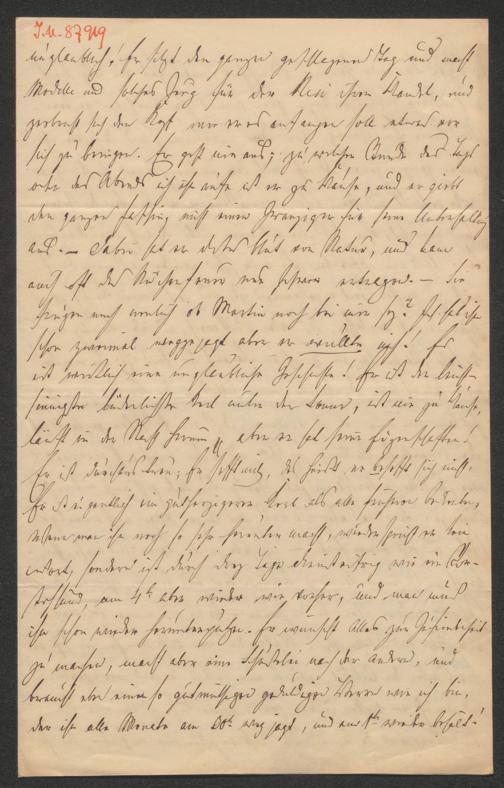 J.N. 87919
unglaublich! Er sitzt den ganzen geschlagenen Tag und macht
Modelle und solches Zeug für den Resi ihren Handel, und
zerbricht sich den Kopf wie er es anfangen soll etwas vor
sich zu bringen. Er geht nie aus; zu welcher Stunde des Tags
oder des Abends ich ihn rufe ist er zu Hause, und er giebt
den ganzen Fasching nicht einen Zwanziger für seine Unterhaltung
aus. — Dabei hat er dickes Blut von Natur, und kann
auch oft das Küchenfeuer nur schwer ertragen. — Sie
fragen mich neulich ob Martin noch bei mir sey? Ich hab ihn
schon zweimal weggejagt aber er
ist wirklich eine unglaubliche Geschichte! Er ist der leicht-
sinnigste liederlichste Kerl unter der Sonne, ist nie zu Hause,
läuft in der Nacht herum, aber er hat seine Eigenschaften!
Er ist durchaus treu; Er säuft nie, das heißt er besäuft sich nicht.
Er ist eigentlich ein gutherzigerer Kerl als alle früheren Bedienten,
Wenn man ihn noch so sehr herunter macht, widerspricht er kein
Wort, sondern ist durch drey Tage diensteifrig wie ein
am 4t aber wieder wie vorher, und man muß
ihn schon wieder herunterputzen. Er wünscht Alles zur Zufriedenheit
zu machen, macht aber eine nach der andern, und
braucht eben einen so gutmüthigen geduldigen Herrn wie ich bin,
der ihn alle Monate am 20t weg jagt, und am 1t wieder behält!